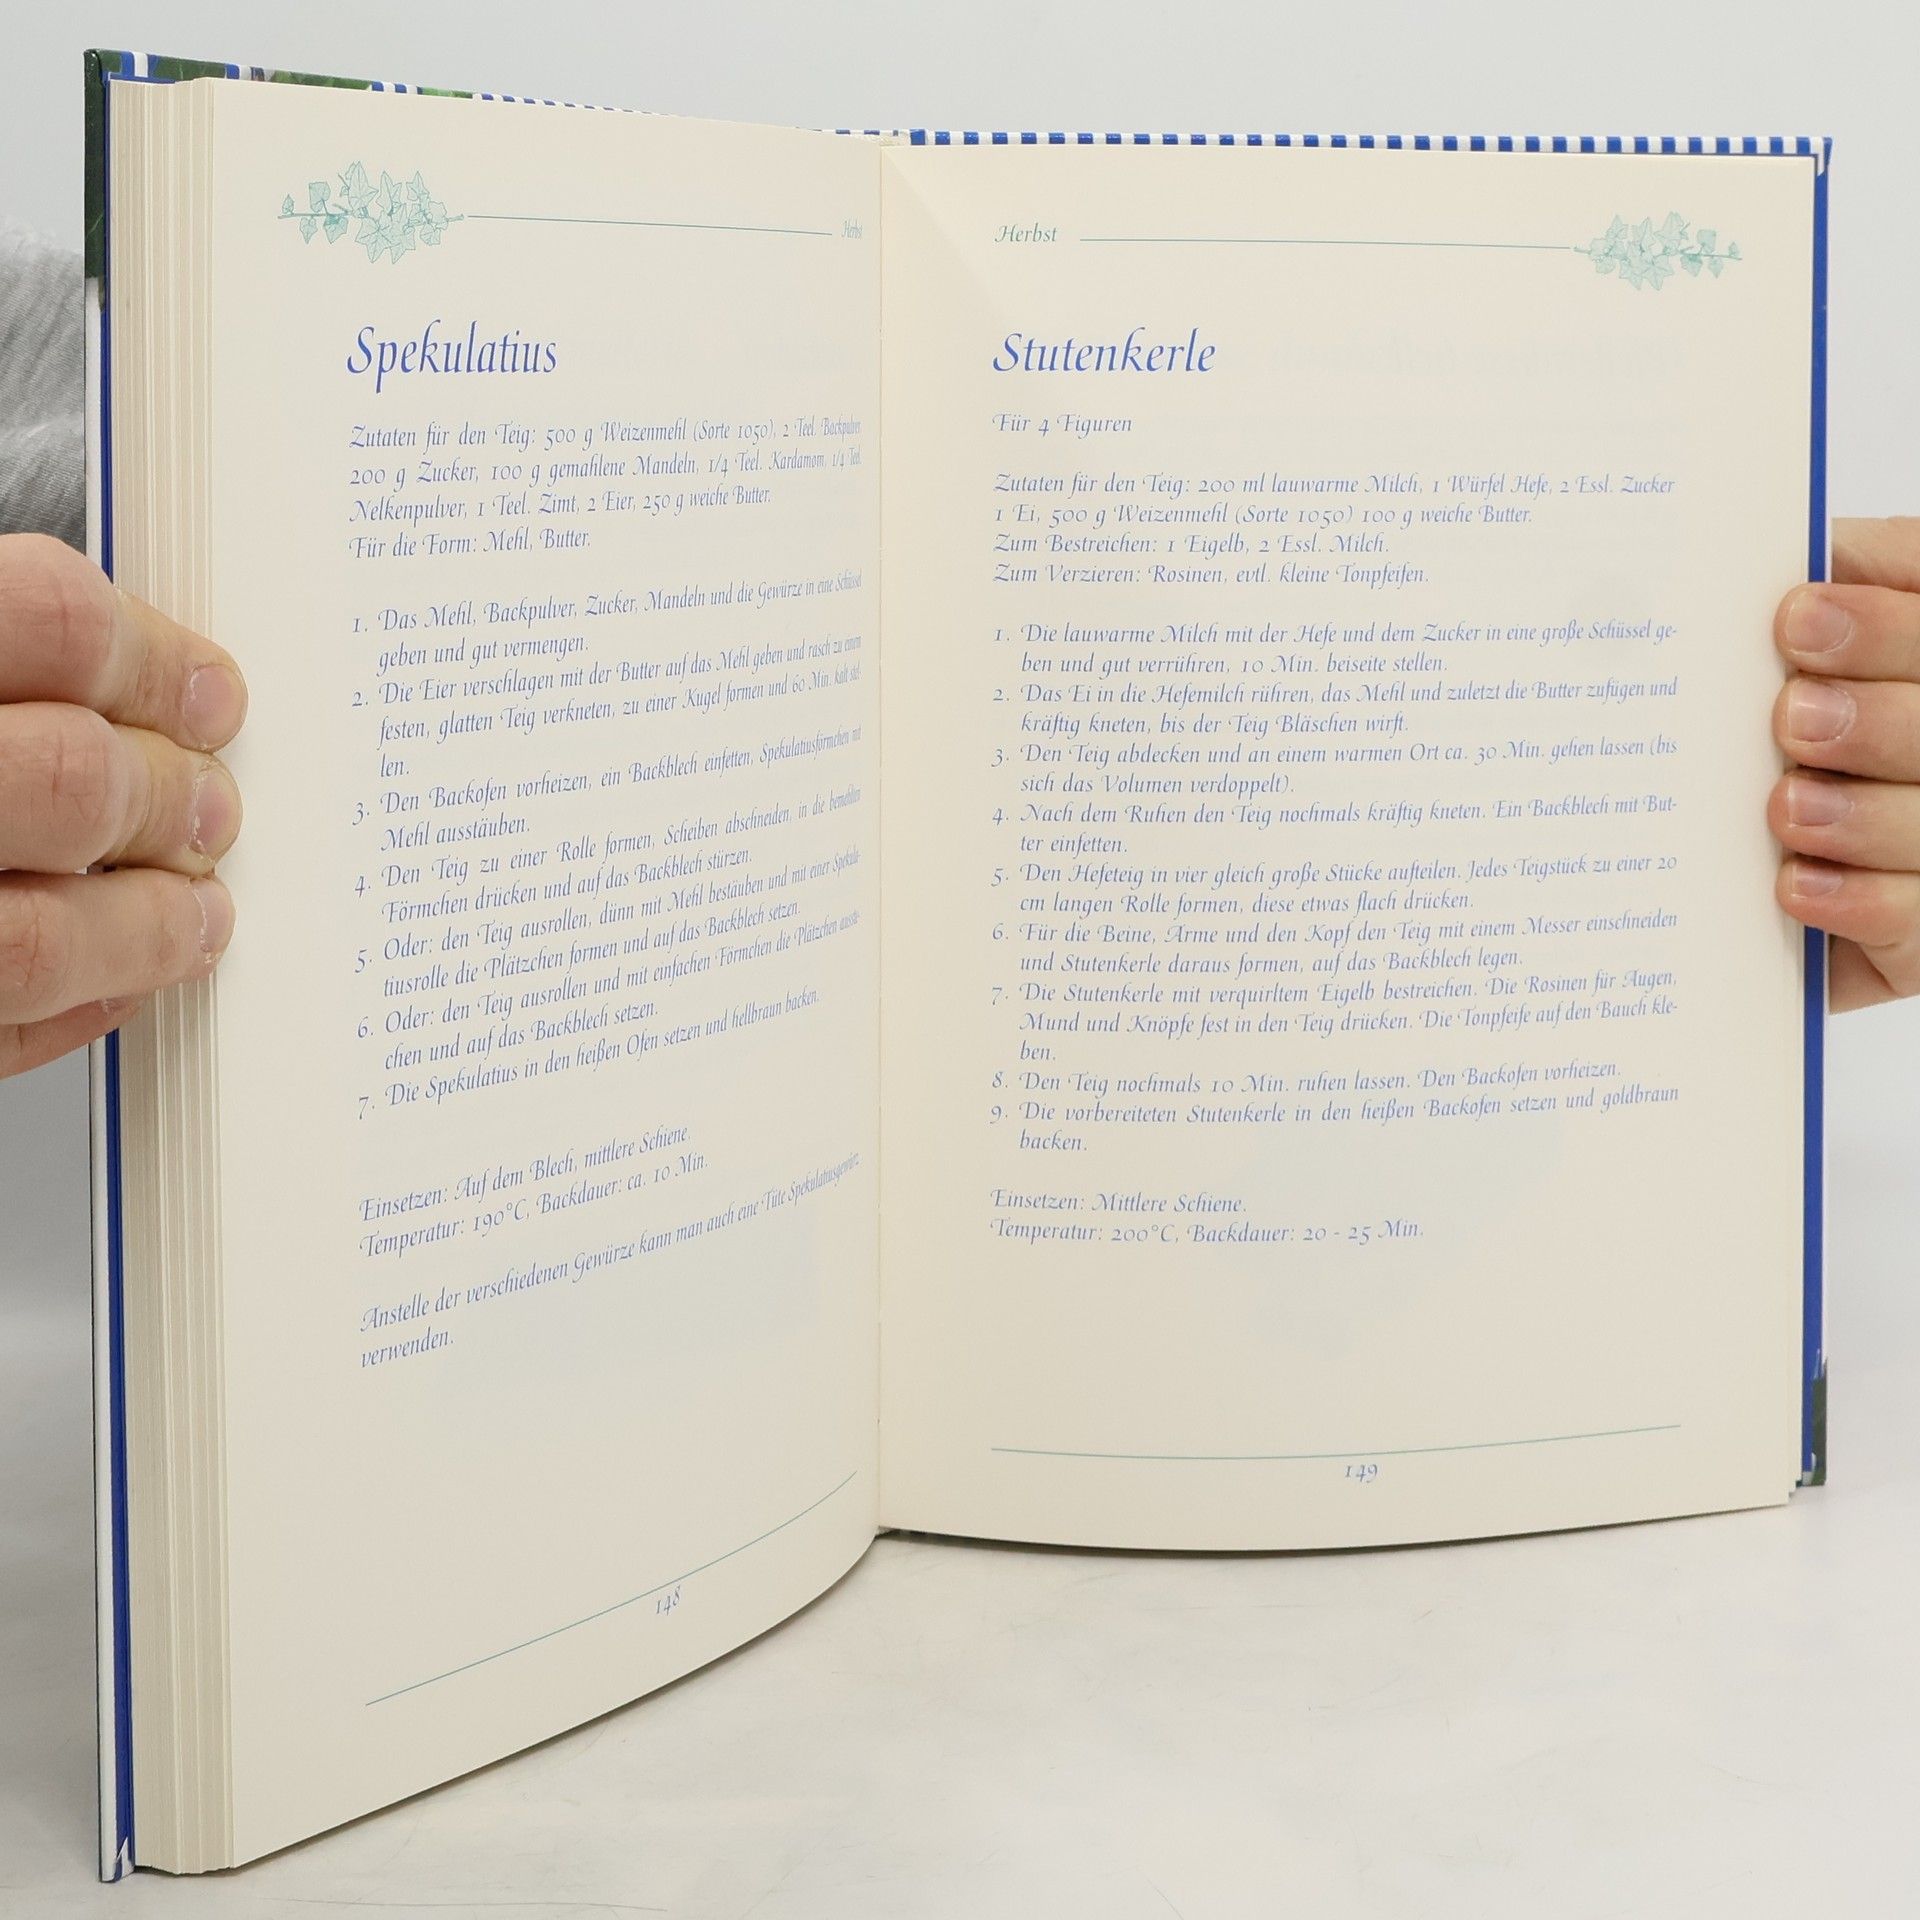 Herbst
Spekulatius
Zutaten für den Teig: 500 g Weizenmehl (Sorte 1050), 2 Teel. Backpulver
200 g Zucker, 100 g gemahlene Mandeln, 1/4 Teel. Kardamom, 1/4 Teel.
Nelkenpulver, 1 Teel. Zimt, 2 Eier, 250 g weiche Butter.
Für die Form: Mehl, Butter.
1. Das Mehl, Backpulver, Zucker, Mandeln und die Gewürze in eine Schüssel
geben und gut vermengen.
2. Die Eier verschlagen mit der Butter auf das Mehl geben und rasch zu einen
festen, glatten Teig verkneten, zu einer Kugel formen und 60 Min. kalt stel-
len.
3. Den Backofen vorheizen, ein Backblech einfetten, Spekulatiusförmchen mit
Mehl ausstäuben.
4. Den Teig zu einer Rolle formen, Scheiben abschneiden, in die bemehlten
Förmchen drücken und auf das Backblech stürzen.
5. Oder: den Teig ausrollen, dünn mit Mehl bestäuben und mit einer Spekula-
tiusrolle die Plätzchen formen und auf das Backblech setzen.
6. Oder: den Teig ausrollen und mit einfachen Förmchen die Plätzchen ausste-
chen und auf das Backblech setzen.
7. Die Spekulatius in den heißen Ofen setzen und hellbraun backen.
Einsetzen: Auf dem Blech, mittlere Schiene.
Temperatur: 190°C, Backdauer: ca. 10 Min.
Anstelle der verschiedenen Gewürze kann man auch eine Tüte Spekulatiusgewürz
verwenden.
148
Herbst
Stutenkerle
Für 4 Figuren
Zutaten für den Teig: 200 ml lauwarme Milch, 1 Würfel Hefe, 2 Essl. Zucker
1 Ei, 500 g Weizenmehl (Sorte 1050) 100 g weiche Butter.
Zum Bestreichen: 1 Eigelb, 2 Essl. Milch.
Zum Verzieren: Rosinen, evtl. kleine Tonpfeifen.
1. Die lauwarme Milch mit der Hefe und dem Zucker in eine große Schüssel ge-
ben und gut verrühren, 10 Min. beiseite stellen.
2. Das Ei in die Hefemilch rühren, das Mehl und zuletzt die Butter zufügen und
kräftig kneten, bis der Teig Bläschen wirft.
3. Den Teig abdecken und an einem warmen Ort ca. 30 Min. gehen lassen (bis
sich das Volumen verdoppelt).
4. Nach dem Ruhen den Teig nochmals kräftig kneten. Ein Backblech mit But-
ter einfetten.
5. Den Hefeteig in vier gleich große Stücke aufteilen. Jedes Teigstück zu einer 20
cm langen Rolle formen, diese etwas flach drücken.
6. Für die Beine, Arme und den Kopf den Teig mit einem Messer einschneiden
und Stutenkerle daraus formen, auf das Backblech legen.
7. Die Stutenkerle mit verquirltem Eigelb bestreichen. Die Rosinen für Augen,
Mund und Knöpfe fest in den Teig drücken. Die Tonpfeife auf den Bauch kle-
ben.
8. Den Teig nochmals 10 Min. ruhen lassen. Den Backofen vorheizen.
9. Die vorbereiteten Stutenkerle in den heißen Backofen setzen und goldbraun
backen.
Einsetzen: Mittlere Schiene.
Temperatur: 200°C, Backdauer: 20 - 25 Min.
149